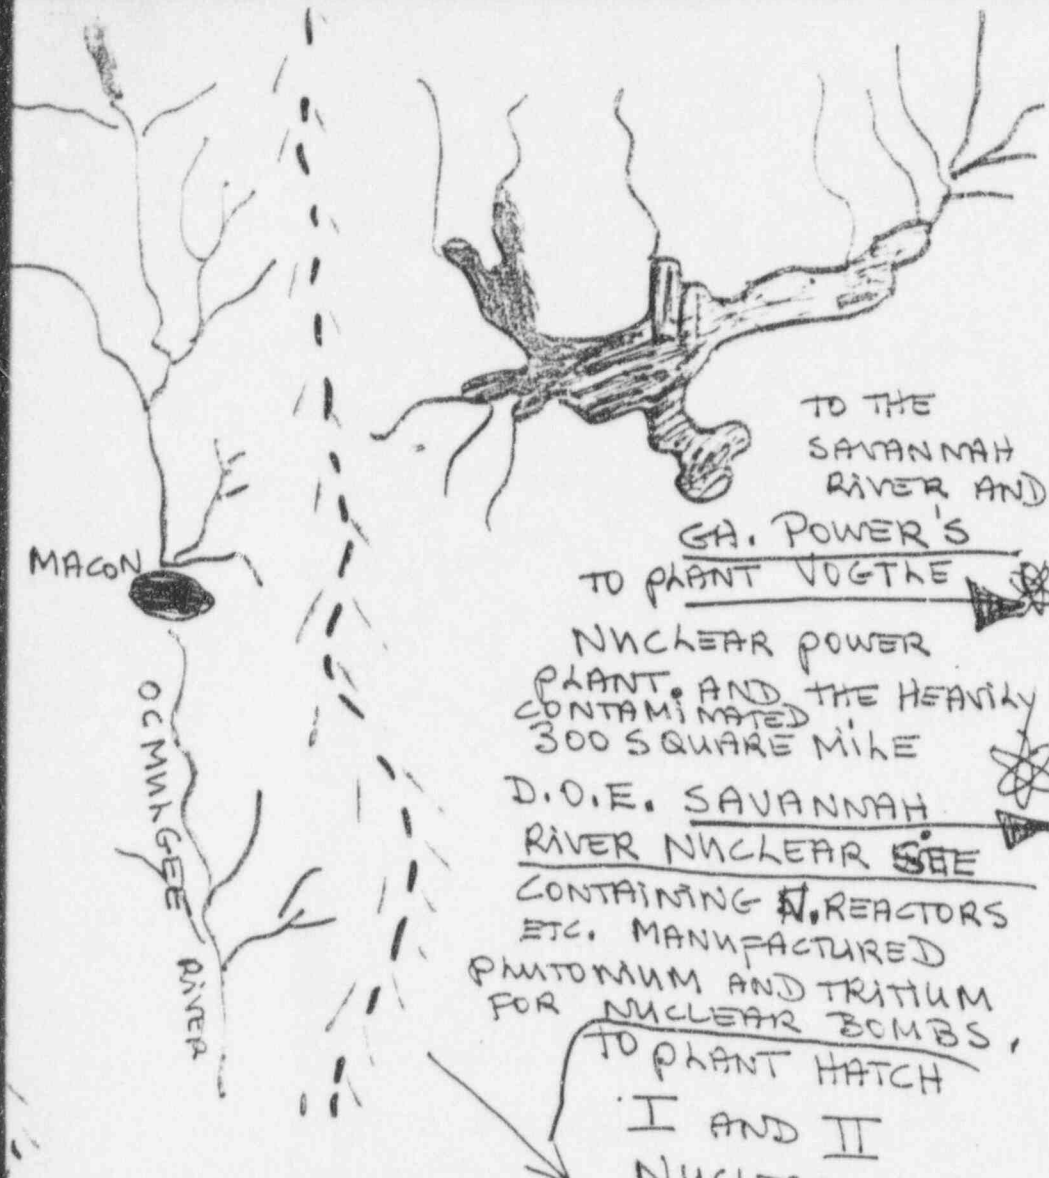 TO THE
SAVANNAH
RIVER AND
GA. POWER'S
TO PLANT VOGTLE
MACON
NUCLEAR POWER
PLANT. AND THE HEAVILY
CONTAMINATED
300 SQUARE MILE
D.O.E. SAVANNAH
RIVER NUCLEAR SITE
CONTAINING N. REACTORS
ETC. MANUFACTURED
PLUTONIUM AND TRITIUM
FOR NUCLEAR BOMBS.
TO PLANT HATCH
I AND II
OCMULGEE RIVER